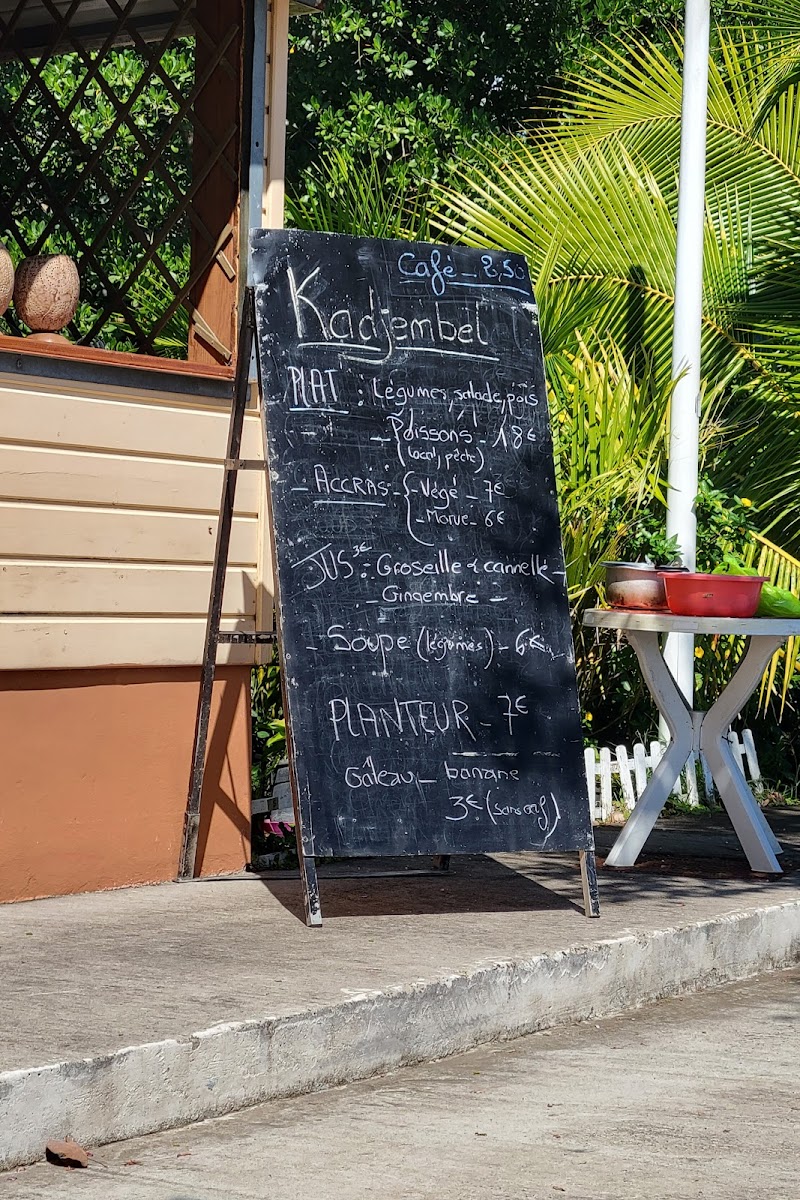 Café - 2,50
Kadjembel
PLAT : Légumes, salade, pois
- - Poissons - 18€
(local, pêche)
- ACCRAS - { - Végé - 7€
- Morue - 6€
JUS 3€ : Groseille & cannelle -
- Gingembre -
- Soupe (légumes) - 6€
PLANTEUR - 7€
Gâteau - banane
3€ (sans œuf)